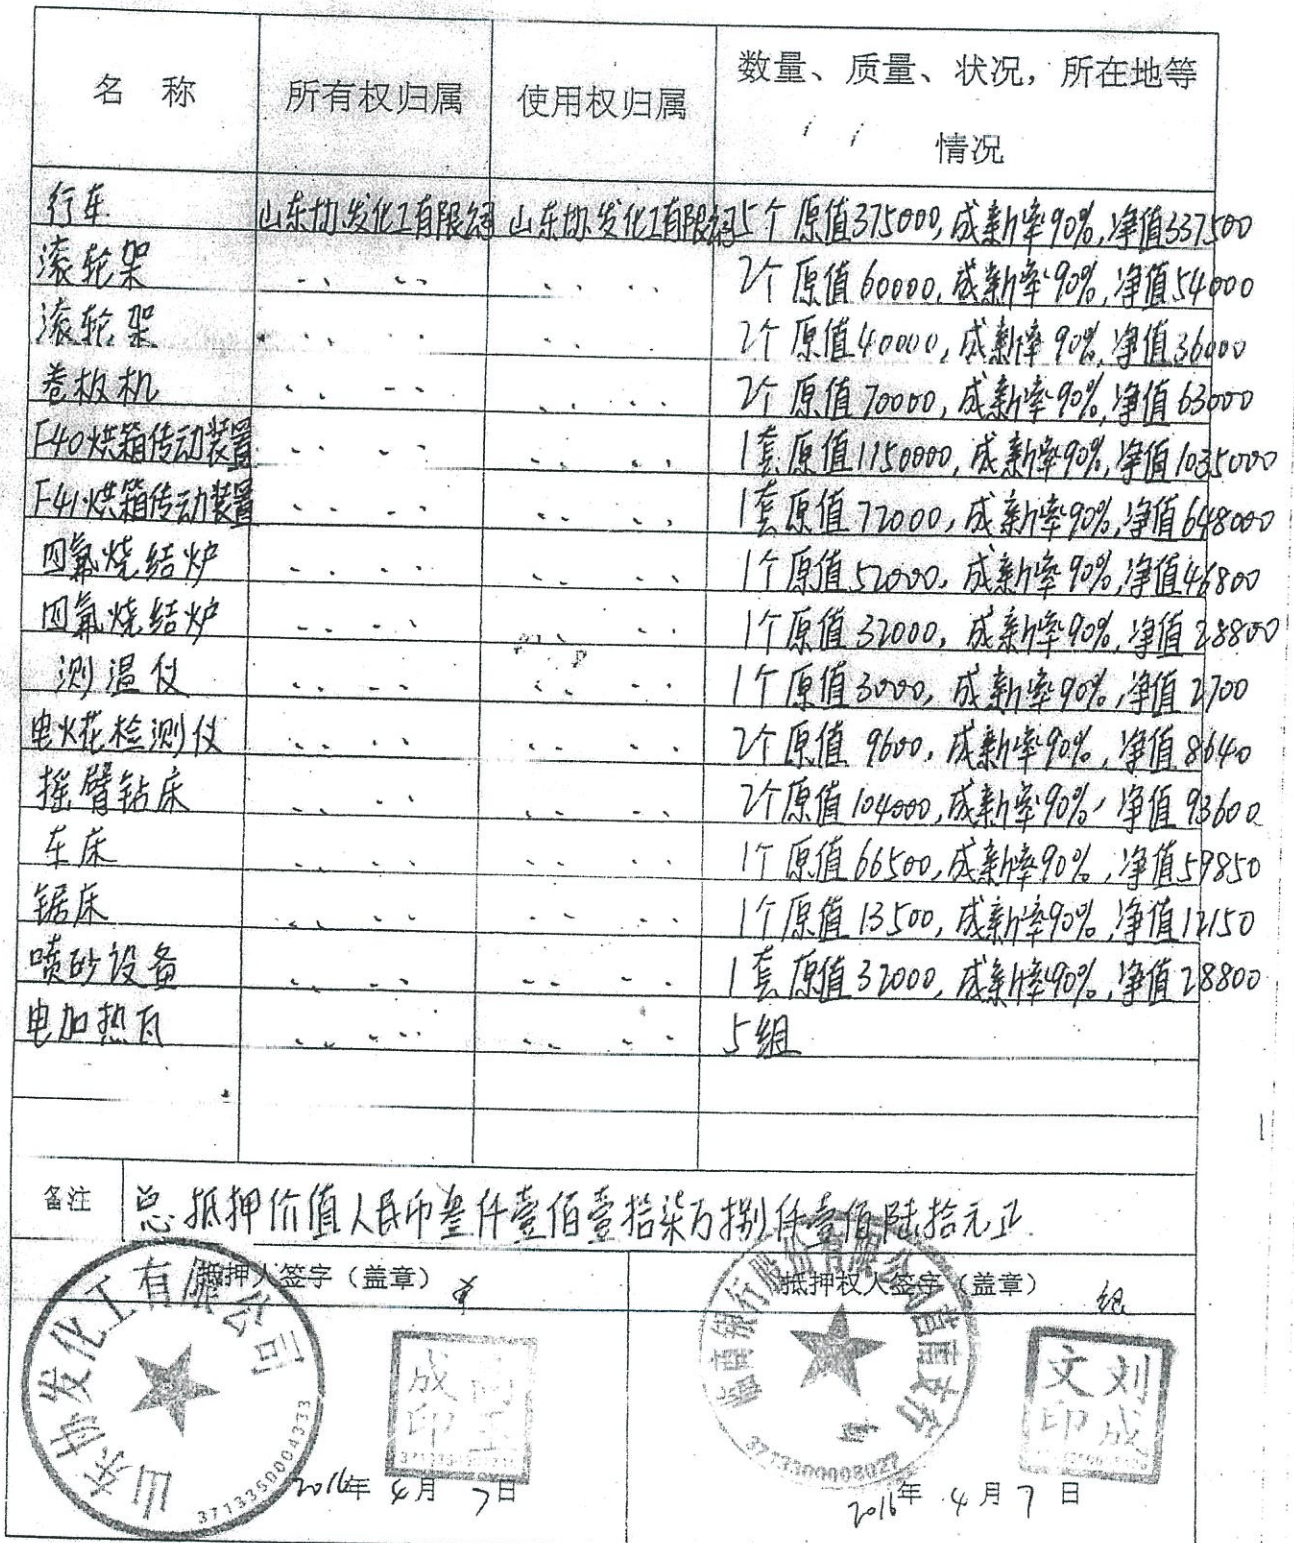 名 称 所有权归属 使用权归属 数量、质量、状况，所在地等情况
行车 山东协发化工有限公司 山东协发化工有限公司 5个 原值375000,成新率90%,净值337500
滚轮架 〃 〃 〃 〃 2个 原值60000,成新率90%,净值54000
滚轮架 〃 〃 〃 〃 2个 原值40000,成新率90%,净值36000
卷板机 〃 〃 〃 〃 2个 原值70000,成新率90%,净值63000
F40烘箱传动装置 〃 〃 〃 〃 1套 原值1150000,成新率90%,净值1035000
F41烘箱传动装置 〃 〃 〃 〃 1套 原值72000,成新率90%,净值648000
四氟烧结炉 〃 〃 〃 〃 1个 原值52000,成新率90%,净值46800
四氟烧结炉 〃 〃 〃 〃 1个 原值32000,成新率90%,净值28800
测温仪 〃 〃 〃 〃 1个 原值3000,成新率90%,净值2700
电火花检测仪 〃 〃 〃 〃 2个 原值 9600,成新率90%,净值8640
摇臂钻床 〃 〃 〃 〃 2个 原值104000,成新率90%,净值93600
车床 〃 〃 〃 〃 1个 原值66500,成新率90%,净值59850
锯床 〃 〃 〃 〃 1个 原值13500,成新率90%,净值12150
喷砂设备 〃 〃 〃 〃 1套 原值32000,成新率90%,净值28800
电加热瓦 〃 〃 〃 〃 5组
备注 总抵押价值人民币叁仟壹佰壹拾柒万捌仟壹佰陆拾元正
抵押人签字（盖章） 抵押权人签字（盖章）
山东协发化工有限公司
3713350004333
成印
临商银行股份有限公司莒南支行
刘成文印
2016年 4月 7日
2016年 4月 7日